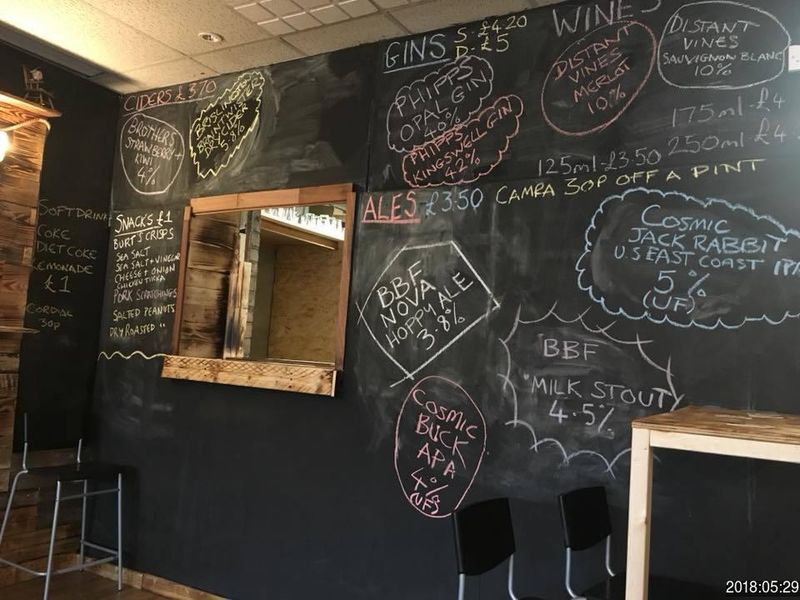 CIDERS £3.70
BROTHERS
STRAWBERRY +
KIWI
4%
SOFT DRINK
COKE
DIET COKE
LEMONADE
£1
CORDIAL
30P
SNACK'S £1
BURTS CRISPS
SEA SALT
SEA SALT + VINEGAR
CHEESE + ONION
CHICKEN TIKKA
PORK SCRATCHINGS
SALTED PEANUTS
DRY ROASTED "
GINS
S - £4.20
D - £5
PHIPPS
OPAL GIN
40%
PHIPPS
KINGSWELL GIN
42%
WINES
DISTANT
VINES
MERLOT
10%
DISTANT
VINES
SAUVIGNON BLANC
10%
175ml - £4
125ml - £3.50 250ml - £4
ALES £3.50 CAMRA 30P OFF A PINT
BBF
NOVA
HOPPY ALE
3.8%
COSMIC
JACK RABBIT
U.S EAST COAST IPA
5%
(UF)
BBF
MILK STOUT
4.5%
COSMIC
BUCK
APA
4%
(UF)
2018:05:29